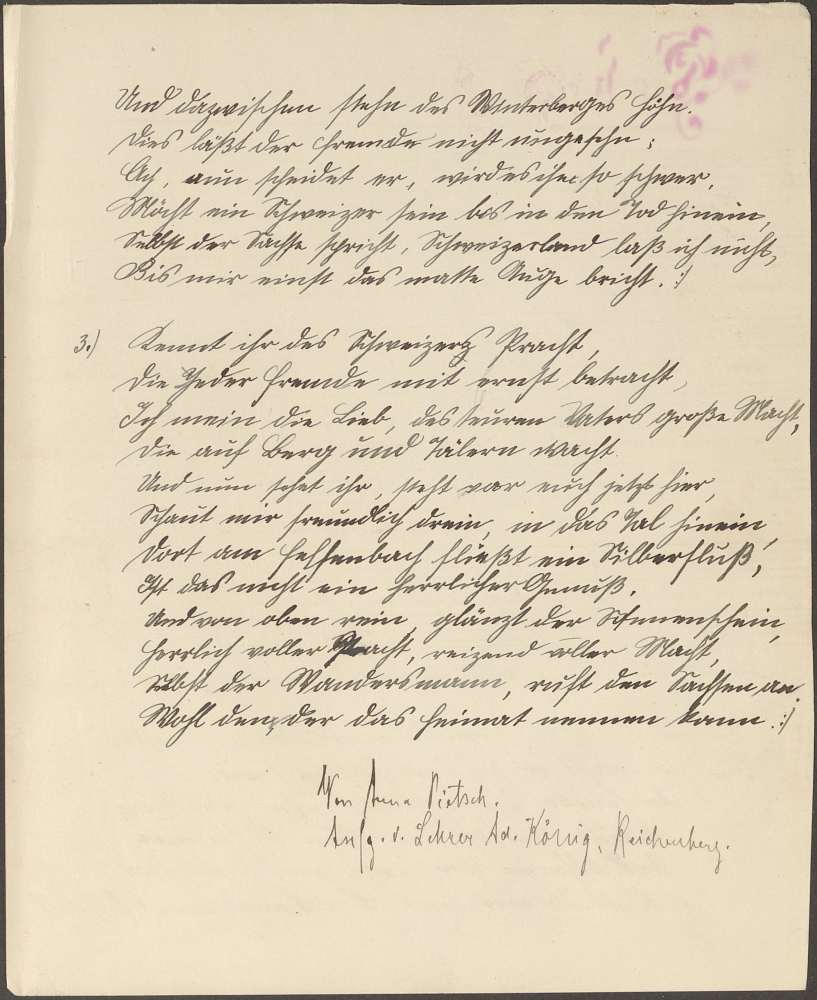 Und dazwischen stehn des Winterberges Höhn.
Dies läßt der Fremde nicht ungesehn;
Ach, nun scheidet er, wird es ihm so schwer,
Möcht ein Schweizer sein bis in den Tod hinein,
Selbst der Sachse spricht, Schweizerland laß ich nicht,
Bis mir einst das matte Auge bricht. :/
3.) Kennt ihr des Schweizers Pracht,
Die Jeder Fremde mit ernst betracht,
Ich mein die Lieb, des teuren Vaters große Macht,
Die auf Berg und Tälern wacht.
Und nun sehet ihr, steht vor euch jetzt hier,
Schaut mir freundlich drein, in das Tal hinein,
Dort am Felsenbach fließt ein Silberfluß,
Ist das nicht ein herrlicher Genuß.
Und von oben rein, glänzt der Sonnenschein,
Herrlich voller Pracht, reizend voller Macht,
Selbst der Wandersmann, ruft den Sachsen an.
Wohl dem, der das Heimat nennen kann. :/
Von Anna Pietsch.
Aufg. v. Lehrer Ad. König, Reichenberg.